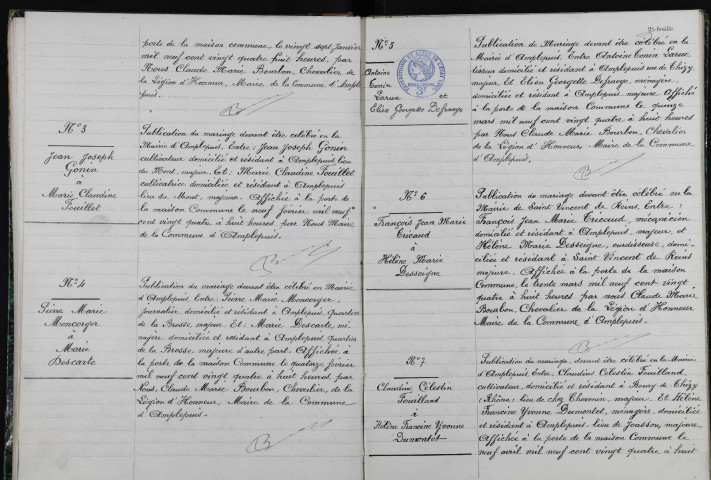 porte de la maison commune, le vingt sept janvier
mil neuf cent vingt quatre huit heures, par
Nous Claude Marie Bourbon, Chevalier de
la Légion d'Honneur, Maire de la Commune d'Ample
puis.
N° 3
Jean Joseph
Gonin
à
Marie Claudine
Fouillet
Publication de mariage devant être célébré en la
Mairie d'Amplepuis. Entre: Jean Joseph Gonin
cultivateur domicilié et résidant à Amplepuis lieu
du Mont, majeur. Et: Marie Claudine Fouillet
cultivatrice, domiciliée et résidant à Amplepuis
lieu du Mont, majeure. Affichée à la porte de
la maison Commune le neuf février mil neuf
cent vingt quatre à huit heures, par Nous Maire
de la Commune d'Amplepuis.
N° 4
Pierre Marie
Moncorger
à
Marie
Descarte
Publication du mariage devant être célébré en Mairie
d'Amplepuis. Entre Pierre Marie Moncorger,
journalier domicilié et résidant à Amplepuis, Quartier
de la Brosse, majeur. Et: Marie Descarte, mé-
nagère domiciliée et résidant à Amplepuis Quartier
de la Brosse, majeure d'autre part. Affichée à
la porte de la maison Commune le quatorze février
mil neuf cent vingt quatre à huit heures par
Nous, Claude Marie Bourbon, Chevalier, de la
Légion d'Honneur, Maire de la Commune
d'Amplepuis.-
2e feuille
N° 5
Antoine
Tonin
Larue
et
Elisa Georgette Defarge
Publication de Mariage devant être célébré en la
Mairie d'Amplepuis. Entre Antoine Tonin Larue
tisseur domicilié et résidant à Amplepuis rue de Thizy
majeur. Et Elisa Georgette Defarge, ménagère,
domiciliée et résidant à Amplepuis majeure. Affiché
à la porte de la maison Commune le quinze
mars mil neuf cent vingt quatre à huit heures
par Nous Claude Marie Bourbon, Chevalier
de la Légion d'Honneur Maire de la Commune
d'Amplepuis.
N° 6
François Jean Marie
Tricaud
à
Hélène Marie
Desseigne
Publication de mariage devant être célébré en la
Mairie de Saint Vincent de Reins, Entre:
François Jean Marie Tricaud, mécanicien
domicilié et résidant à Amplepuis, majeur et
Hélène Marie Desseigne, ourdisseuse, domi-
ciliée et résidant à Saint Vincent de Reins
majeure. Affichée à la porte de la maison
Commune, le trente mars mil neuf cent vingt
quatre à huit heures par nous Claude Marie
Bourbon, Chevalier de la Légion d'Honneur
Maire de la Commune d'Amplepuis.
N° 7
Claudius Célestin
Fouilland
à
Hélène Francine Yvonne
Dumontet
Publication du mariage, devant être célébré en la Mairie
d'Amplepuis, Entre: Claudius Célestin Fouilland,
cultivateur, domicilié et résidant à Bourg de Thizy
(Rhône) lieu de chez majeur. Et Hélène
Francine Yvonne Dumontet, ménagère, domiciliée
et résidant à Amplepuis lieu de majeure
Affichée à la porte de la maison Commune le
neuf avril mil neuf cent vingt quatre à huit